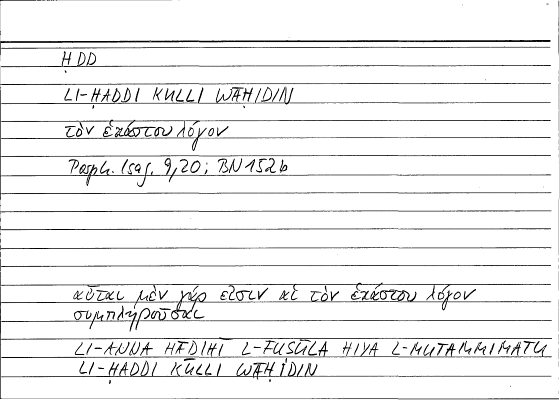 ḤDD
LI-ḤADDI KULLI WĀḤIDIN
τὸν ἑκάστου λόγον
Porph. Isag. 9,20; BN 152b
αὗται μὲν γάρ εἰσιν αἱ τὸν ἑκάστου λόγον
συμπληροῦσαι
LI-ANNA HĀḎIHĪ L-FUṢŪLA HIYA L-MUTAMMIMATU
LI-ḤADDI KULLI WĀḤIDIN